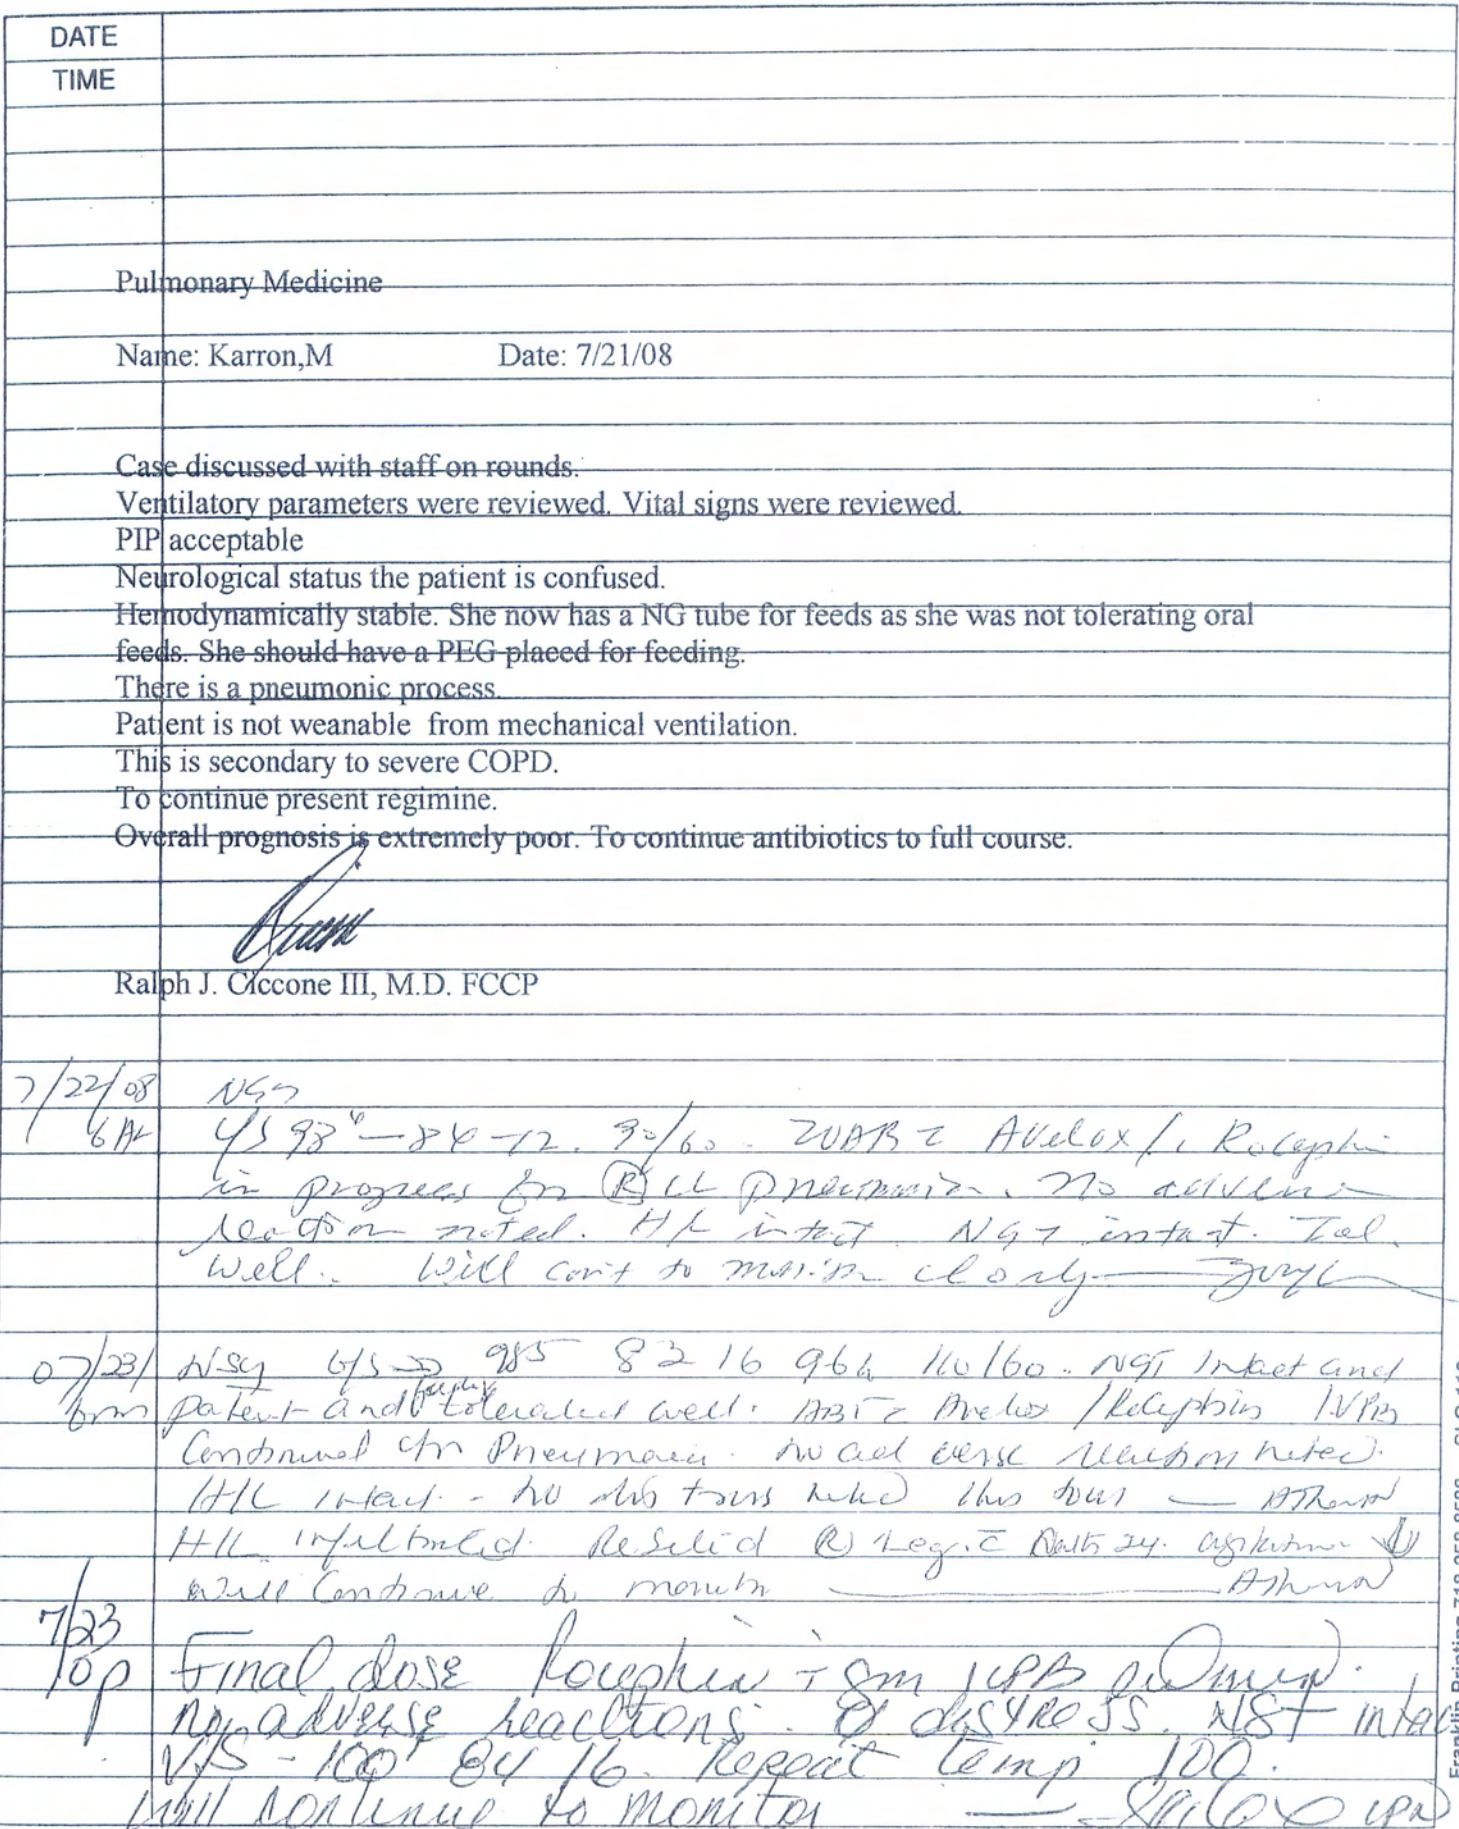 DATE
TIME
Pulmonary Medicine
Name: Karron,M Date: 7/21/08
Case discussed with staff on rounds.
Ventilatory parameters were reviewed. Vital signs were reviewed.
PIP acceptable
Neurological status the patient is confused.
Hemodynamically stable. She now has a NG tube for feeds as she was not tolerating oral
feeds. She should have a PEG placed for feeding.
There is a pneumonic process.
Patient is not weanable from mechanical ventilation.
This is secondary to severe COPD.
To continue present regimine.
Overall prognosis is extremely poor. To continue antibiotics to full course.
Ralph J. Ciccone III, M.D. FCCP
7/22/08
6 AM 84-12. 90/60 - Avelox / Rocephin
in progress for (R) LL pneumonia. No adverse
reaction noted. HL intact NGT intact. Tol.
well. Will con't to monitor closely
07/23/ Nsg V/S 985 82 16 96% 110/60. NGT Intact and
patent and feeding tolerated well. Avelox / Rocephin IVPB
Continued for Pneumonia. No adverse reaction noted.
H/L intact. - No distress noted this tour
H/L infiltrated. (R) Leg.
Will Continue to monitor
7/23
10p Final dose Rocephin 1 gm IVPB
no adverse reactions. distress. NGT intac
V/S - 100 84 16. Repeat temp 100.
Will continue to monitor LPN